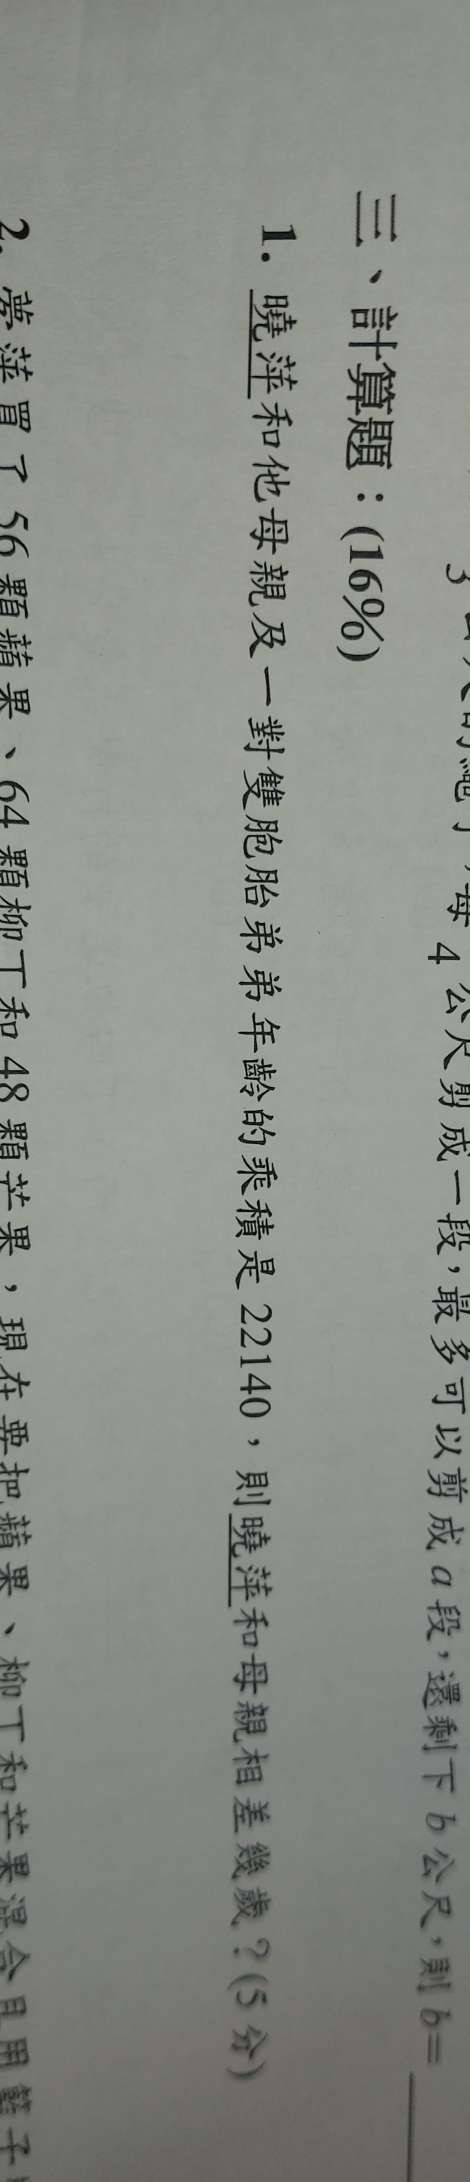 公尺剪成一段，最多可以剪成a段，還剩下b公尺，則b=
三、計算題：(16%)
1. 曉萍和他母親及一對雙胞胎弟弟年齡的乘積是22140，則曉萍和母親相差幾歲？(5分)
2. 萍買了56顆蘋果、64顆柳丁和48顆芒果，現在要把蘋果、柳丁和芒果混合且用籃子